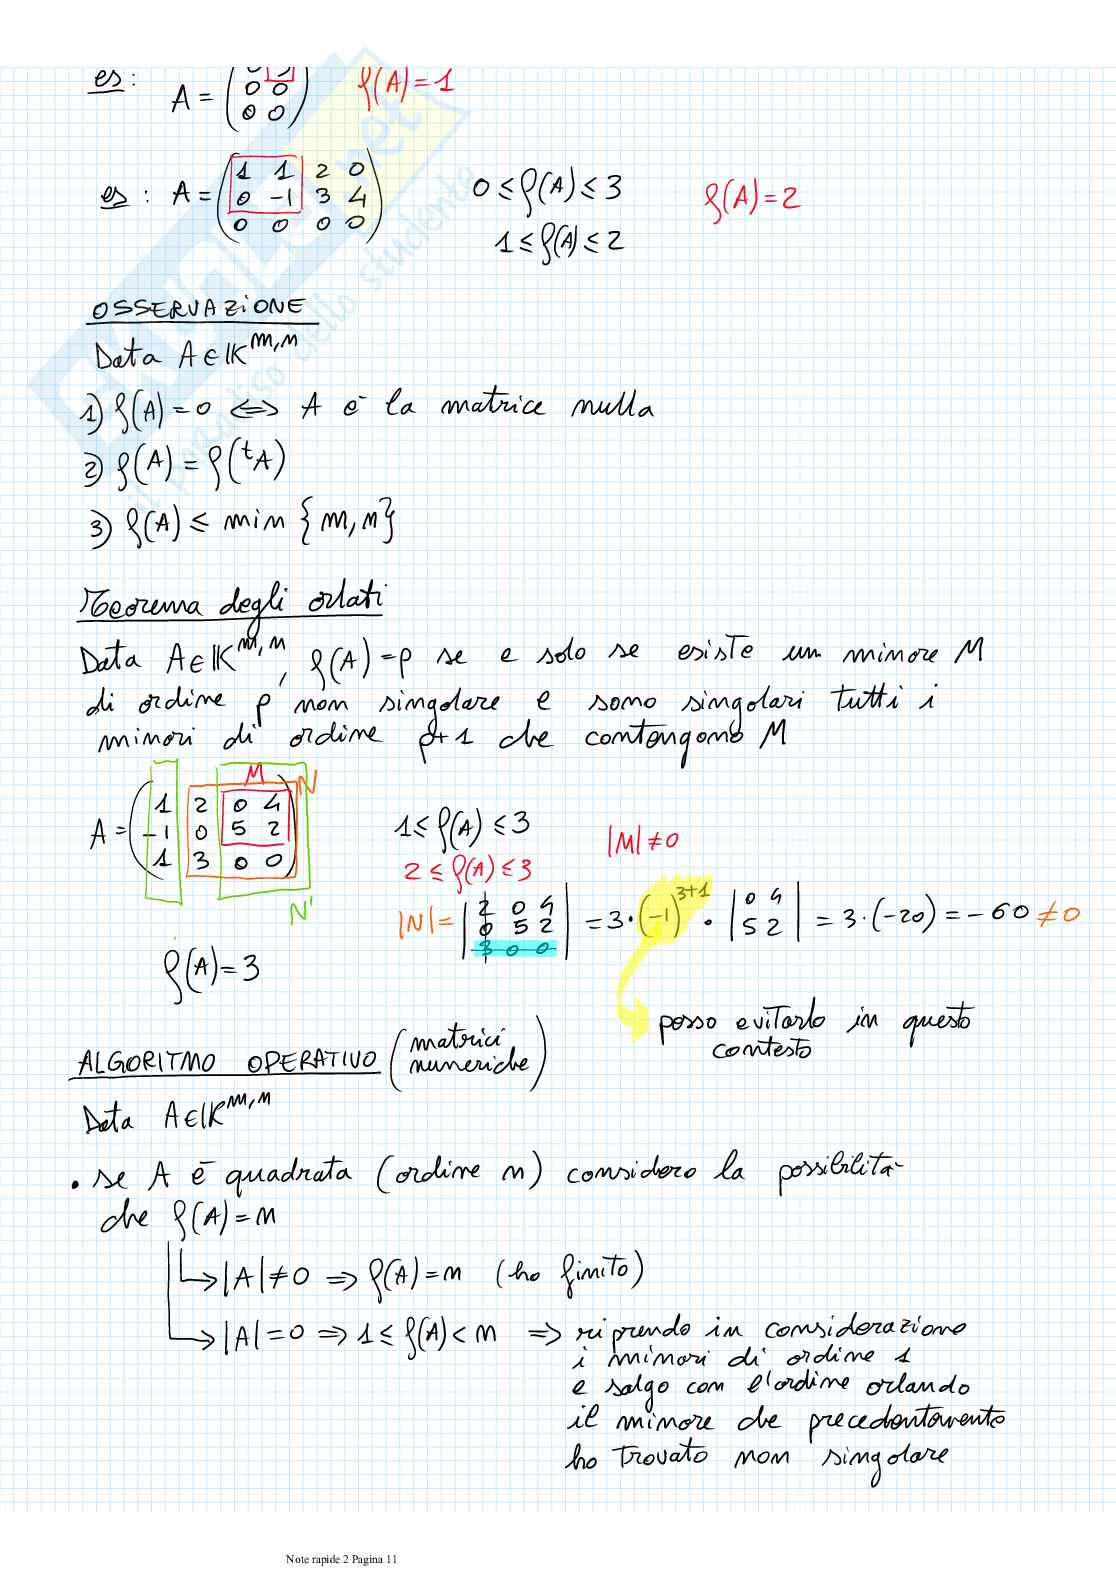 es:
A = ( 0 0 ρ(A)=1
0 0 )
es: A = ( 1 1 2 0
0 -1 3 4
0 0 0 0 )
0 ≤ ρ(A) ≤ 3
1 ≤ ρ(A) ≤ 2
ρ(A)=2
OSSERVAZIONE
Data A∈K^m,n
1) ρ(A)=0 ⟺ A è la matrice nulla
2) ρ(A) = ρ(ᵗA)
3) ρ(A) ≤ min {m,n}
Teorema degli orlati
Data A∈K^m,n, ρ(A)=p se e solo se esiste un minore M
di ordine p non singolare e sono singolari tutti i
minori di ordine p+1 che contengono M
M N
A = ( 1 2 0 4
-1 0 5 2
1 3 0 0 )
N'
1 ≤ ρ(A) ≤ 3
2 ≤ ρ(A) ≤ 3
|M|≠0
|N| = | 2 0 4
0 5 2
3 0 0 | = 3·(-1)^3+1 · | 0 4
5 2 | = 3·(-20) = -60 ≠0
ρ(A)=3
posso evitarlo in questo
contesto
ALGORITMO OPERATIVO (matrici
numeriche)
Data A∈K^m,n
• se A è quadrata (ordine n) considero la possibilità
che ρ(A)=n
↳ |A|≠0 ⇒ ρ(A)=n (ho finito)
↳ |A|=0 ⇒ 1 ≤ ρ(A) < n ⇒ riprendo in considerazione
i minori di ordine 1
e salgo con l'ordine orlando
il minore che precedentemente
ho trovato non singolare
Note rapide 2 Pagina 11